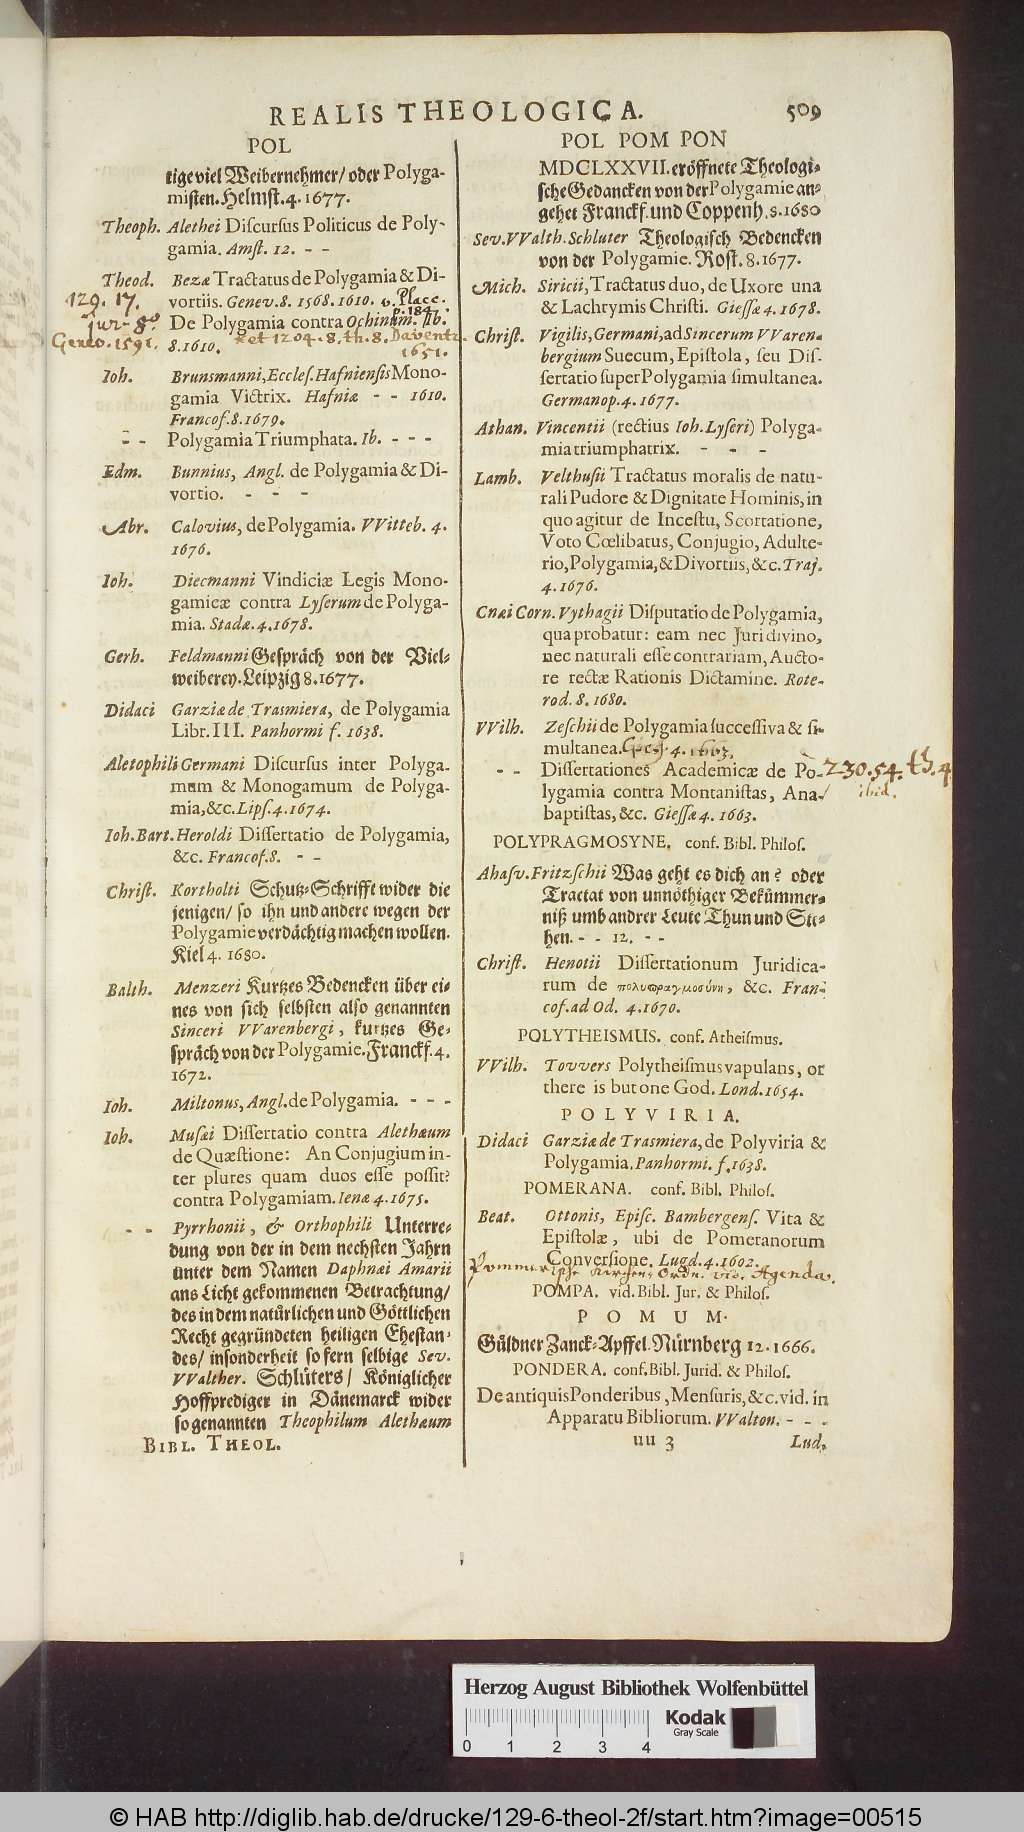 REALIS THEOLOGICA. 509
POL
tige viel Weibernehmer/ oder Polyga-
misten. Helmst. 4. 1677.
Theoph. Alethei Discursus Politicus de Poly-
gamia. Amst. 12. - -
Theod. Bezæ Tractatus de Polygamia & Di-
129. 17. vortiis. Genev. 8. 1568. 1610. v. Place.
p. 184.
jur- 8° De Polygamia contra Ochinum. Ib.
Genev. 1591. 8. 1610. et 1204. 8. th. 8. Daventr.
1651.
Ioh. Brunsmanni, Eccles. Hafniensis Mono-
gamia Victrix. Hafniæ - - 1610.
Francof. 8. 1679.
- - Polygamia Triumphata. Ib. - - -
Edm. Bunnius, Angl. de Polygamia & Di-
vortio. - - -
Abr. Calovius, de Polygamia. VVitteb. 4.
1676.
Ioh. Diecmanni Vindiciæ Legis Mono-
gamicæ contra Lyserum de Polyga-
mia. Stadæ. 4. 1678.
Gerh. Feldmanni Gespräch von der Viel-
weiberey. Leipzig 8. 1677.
Didaci Garziæ de Trasmiera, de Polygamia
Libr. III. Panhormi f. 1638.
Aletophili Germani Discursus inter Polyga-
mum & Monogamum de Polyga-
mia, &c. Lips. 4. 1674.
Ioh. Bart. Heroldi Dissertatio de Polygamia,
&c. Francof. 8. - -
Christ. Kortholti Schutz-Schrifft wider die
jenigen/ so ihn und andere wegen der
Polygamie verdächtig machen wollen.
Kiel 4. 1680.
Balth. Menzeri Kurtzes Bedencken über ei-
nes von sich selbsten also genannten
Sinceri VVarenbergi, kurtzes Ge-
spräch von der Polygamie. Franckf. 4.
1672.
Ioh. Miltonus, Angl. de Polygamia. - - -
Ioh. Musæi Dissertatio contra Alethæum
de Quæstione: An Conjugium in-
ter plures quam duos esse possit?
contra Polygamiam. Ienæ 4. 1675.
- - Pyrrhonii, & Orthophili Unterre-
dung von der in dem nechsten Jahrn
unter dem Namen Daphnæi Amarii
ans Licht gekommenen Betrachtung/
des in dem natürlichen und Göttlichen
Recht gegründeten heiligen Ehestan-
des/ insonderheit so fern selbige Sev.
VValther. Schlüters/ Königlicher
Hoffprediger in Dänemarck wider
so genannten Theophilum Alethæum
BIBL. THEOL.
POL POM PON
MDCLXXVII. eröffnete Theologi-
sche Gedancken von der Polygamie an-
gehet Franckf. und Coppenh. 8. 1680
Sev. VValth. Schluter Theologisch Bedencken
von der Polygamie. Rost. 8. 1677.
Mich. Siricii, Tractatus duo, de Uxore una
& Lachrymis Christi. Giessæ 4. 1678.
Christ. Vigilis, Germani, ad Sincerum VVaren-
bergium Suecum, Epistola, seu Dis-
sertatio super Polygamia simultanea.
Germanop. 4. 1677.
Athan. Vincentii (rectius Ioh. Lyseri) Polyga-
mia triumphatrix. - - -
Lamb. Velthusii Tractatus moralis de natu-
rali Pudore & Dignitate Hominis, in
quo agitur de Incestu, Scortatione,
Voto Cœlibatus, Conjugio, Adulte-
rio, Polygamia, & Divortiis, &c. Traj.
4. 1676.
Cnæi Corn. Vythagii Disputatio de Polygamia,
qua probatur: eam nec Juri divino,
nec naturali esse contrariam, Aucto-
re rectæ Rationis Dictamine. Rote-
rod. 8. 1680.
VVilh. Zeschii de Polygamia successiva & si-
multanea. 4. 1663.
- - Dissertationes Academicæ de Po- 230. 54. th. 4
lygamia contra Montanistas, Ana- ibid.
baptistas, &c. Giessæ 4. 1663.
POLYPRAGMOSYNE. conf. Bibl. Philos.
Ahasv. Fritzschii Was geht es dich an? oder
Tractat von unnöthiger Bekümmer-
niß umb andrer Leute Thun und Ste-
hen. - - 12. - -
Christ. Henotii Dissertationum Juridica-
rum de πολυπραγμοσύνη, &c. Fran-
cof. ad Od. 4. 1670.
POLYTHEISMUS. conf. Atheismus.
VVilh. Tovvers Polytheismus vapulans, or
there is but one God. Lond. 1654.
POLYVIRIA.
Didaci Garziæ de Trasmiera, de Polyviria &
Polygamia. Panhormi. f. 1638.
POMERANA. conf. Bibl. Philos.
Beat. Ottonis, Episc. Bambergens. Vita &
Epistolæ, ubi de Pomeranorum
Conversione. Lugd. 4. 1602.
Pommerische Kirchen-Ordn. vid. Agenda.
POMPA. vid. Bibl. Jur. & Philos.
POMUM.
Güldner Zanck-Apffel. Nürnberg 12. 1666.
PONDERA. conf. Bibl. Jurid. & Philos.
De antiquis Ponderibus, Mensuris, &c. vid. in
Apparatu Bibliorum. VValton. - - -
uu 3 Lud.
Herzog August Bibliothek Wolfenbüttel
Kodak
Gray Scale
0 1 2 3 4
© HAB http://diglib.hab.de/drucke/129-6-theol-2f/start.htm?image=00515